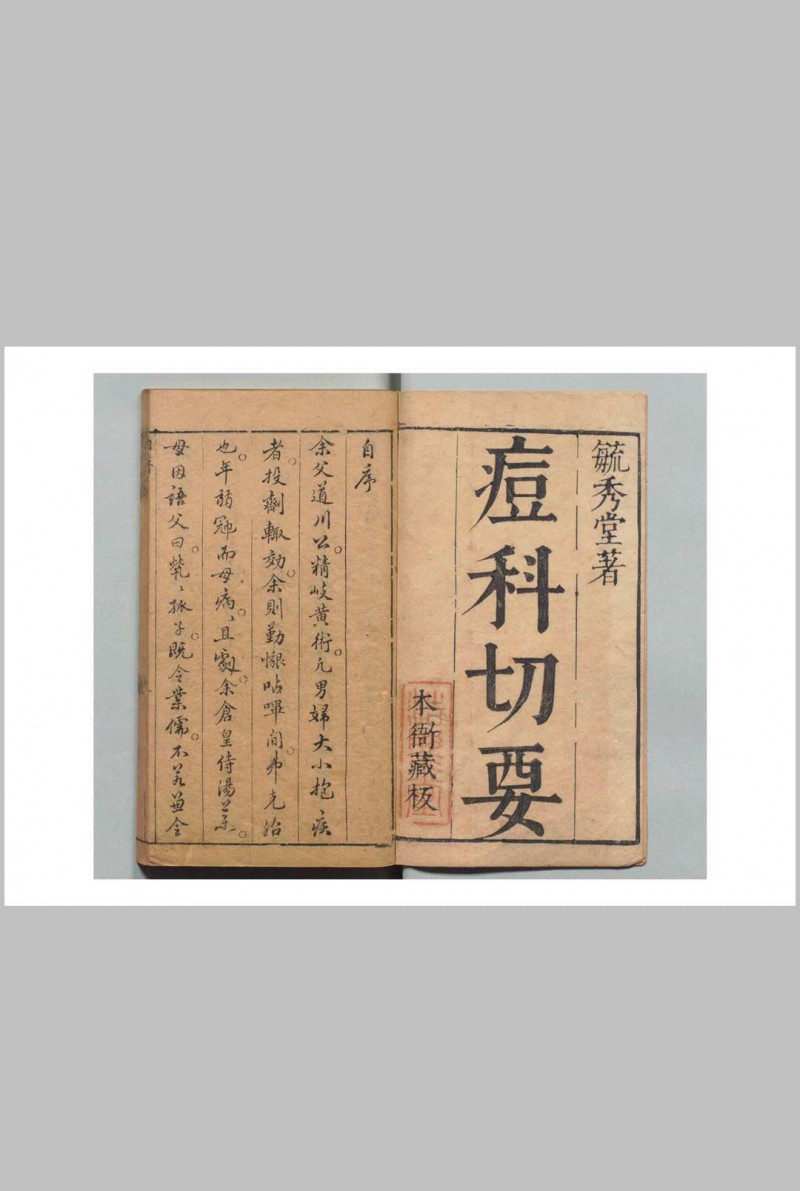 毓秀堂著
痘科切要
本衙藏板
自序
余父道川公精岐黄術凡男婦大小抱疾
者投劑輒効余則勤懇呫嗶間弗克治
也年弱冠而母病且劇余倉皇侍湯藥
母因語父曰煢〻孤子既令業儒不若兼令